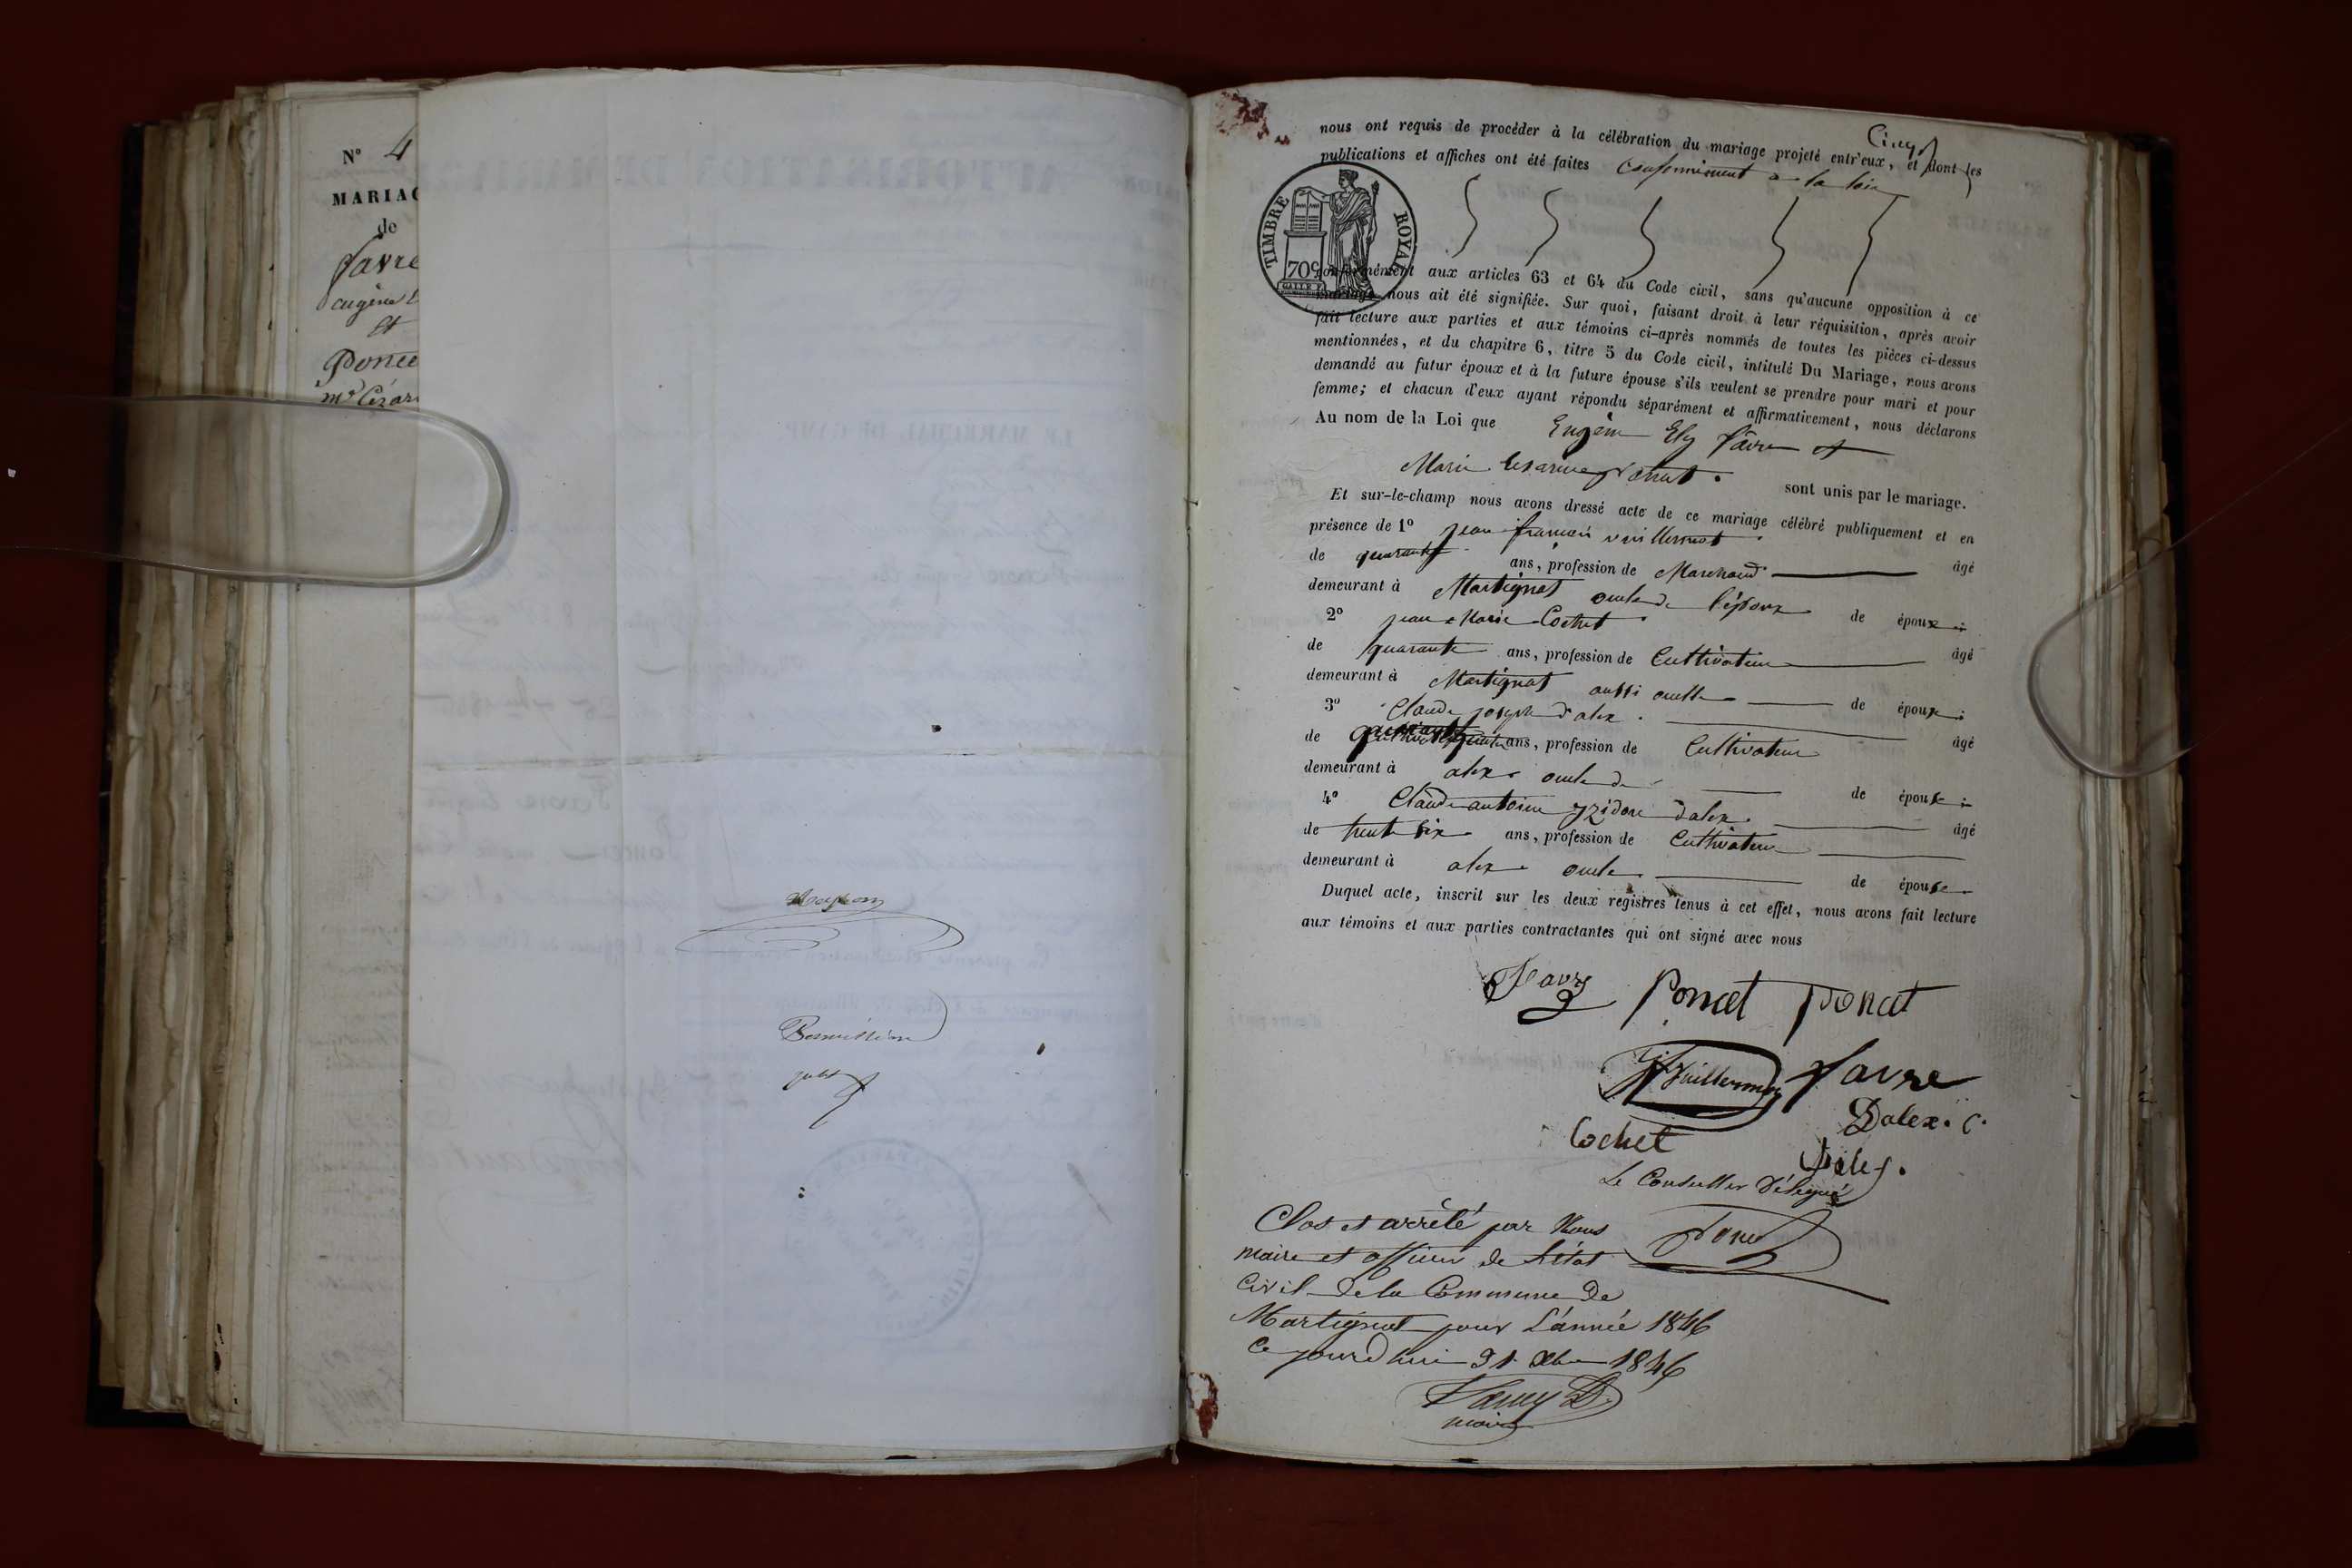 N° 4
MARIAG
de
favre
eugène
Et
Ponce
mie Cézar
Permission
Cinq
nous ont requis de procéder à la célébration du mariage projeté entr'eux, et dont les
publications et affiches ont été faites Conformément a la loi
TIMBRE ROYAL
70c
conformément aux articles 63 et 64 du Code civil, sans qu'aucune opposition à ce
mariage nous ait été signifiée. Sur quoi, faisant droit à leur réquisition, après avoir
fait lecture aux parties et aux témoins ci-après nommés de toutes les pièces ci-dessus
mentionnées, et du chapitre 6, titre 5 du Code civil, intitulé Du Mariage, nous avons
demandé au futur époux et à la future épouse s'ils veulent se prendre pour mari et pour
femme; et chacun d'eux ayant répondu séparément et affirmativement, nous déclarons
Au nom de la Loi que Eugène Ely favre et
Marie Cesarine Poncet. sont unis par le mariage.
Et sur-le-champ nous avons dressé acte de ce mariage célébré publiquement et en
présence de 1° jean francois vuillermot. âgé
de quarante ans, profession de Marchand
demeurant à Martignat oncle de l'époux de époux
2° jean Marie Cochet. âgé
de quarante ans, profession de Cultivateur
demeurant à Martignat aussi oncle de époux
3° Claude joseph dalex. âgé
de ans, profession de Cultivateur
demeurant à alex oncle de de épouse
4° Claude antoine yzidore dalex. âgé
de trente six ans, profession de Cultivateur
demeurant à alex oncle de épouse
Duquel acte, inscrit sur les deux registres tenus à cet effet, nous avons fait lecture
aux témoins et aux parties contractantes qui ont signé avec nous
Favre Poncet Poncet
Vuillermoz favre
Dalex. C.
Cochet
Le Conseiller Délégué
Clos et arrêté par Nous
maire et officier de l'état
Civil de la Commune de
Martignat pour L'année 1846
Ce jourd'hui 31 Xbre 1846
maire